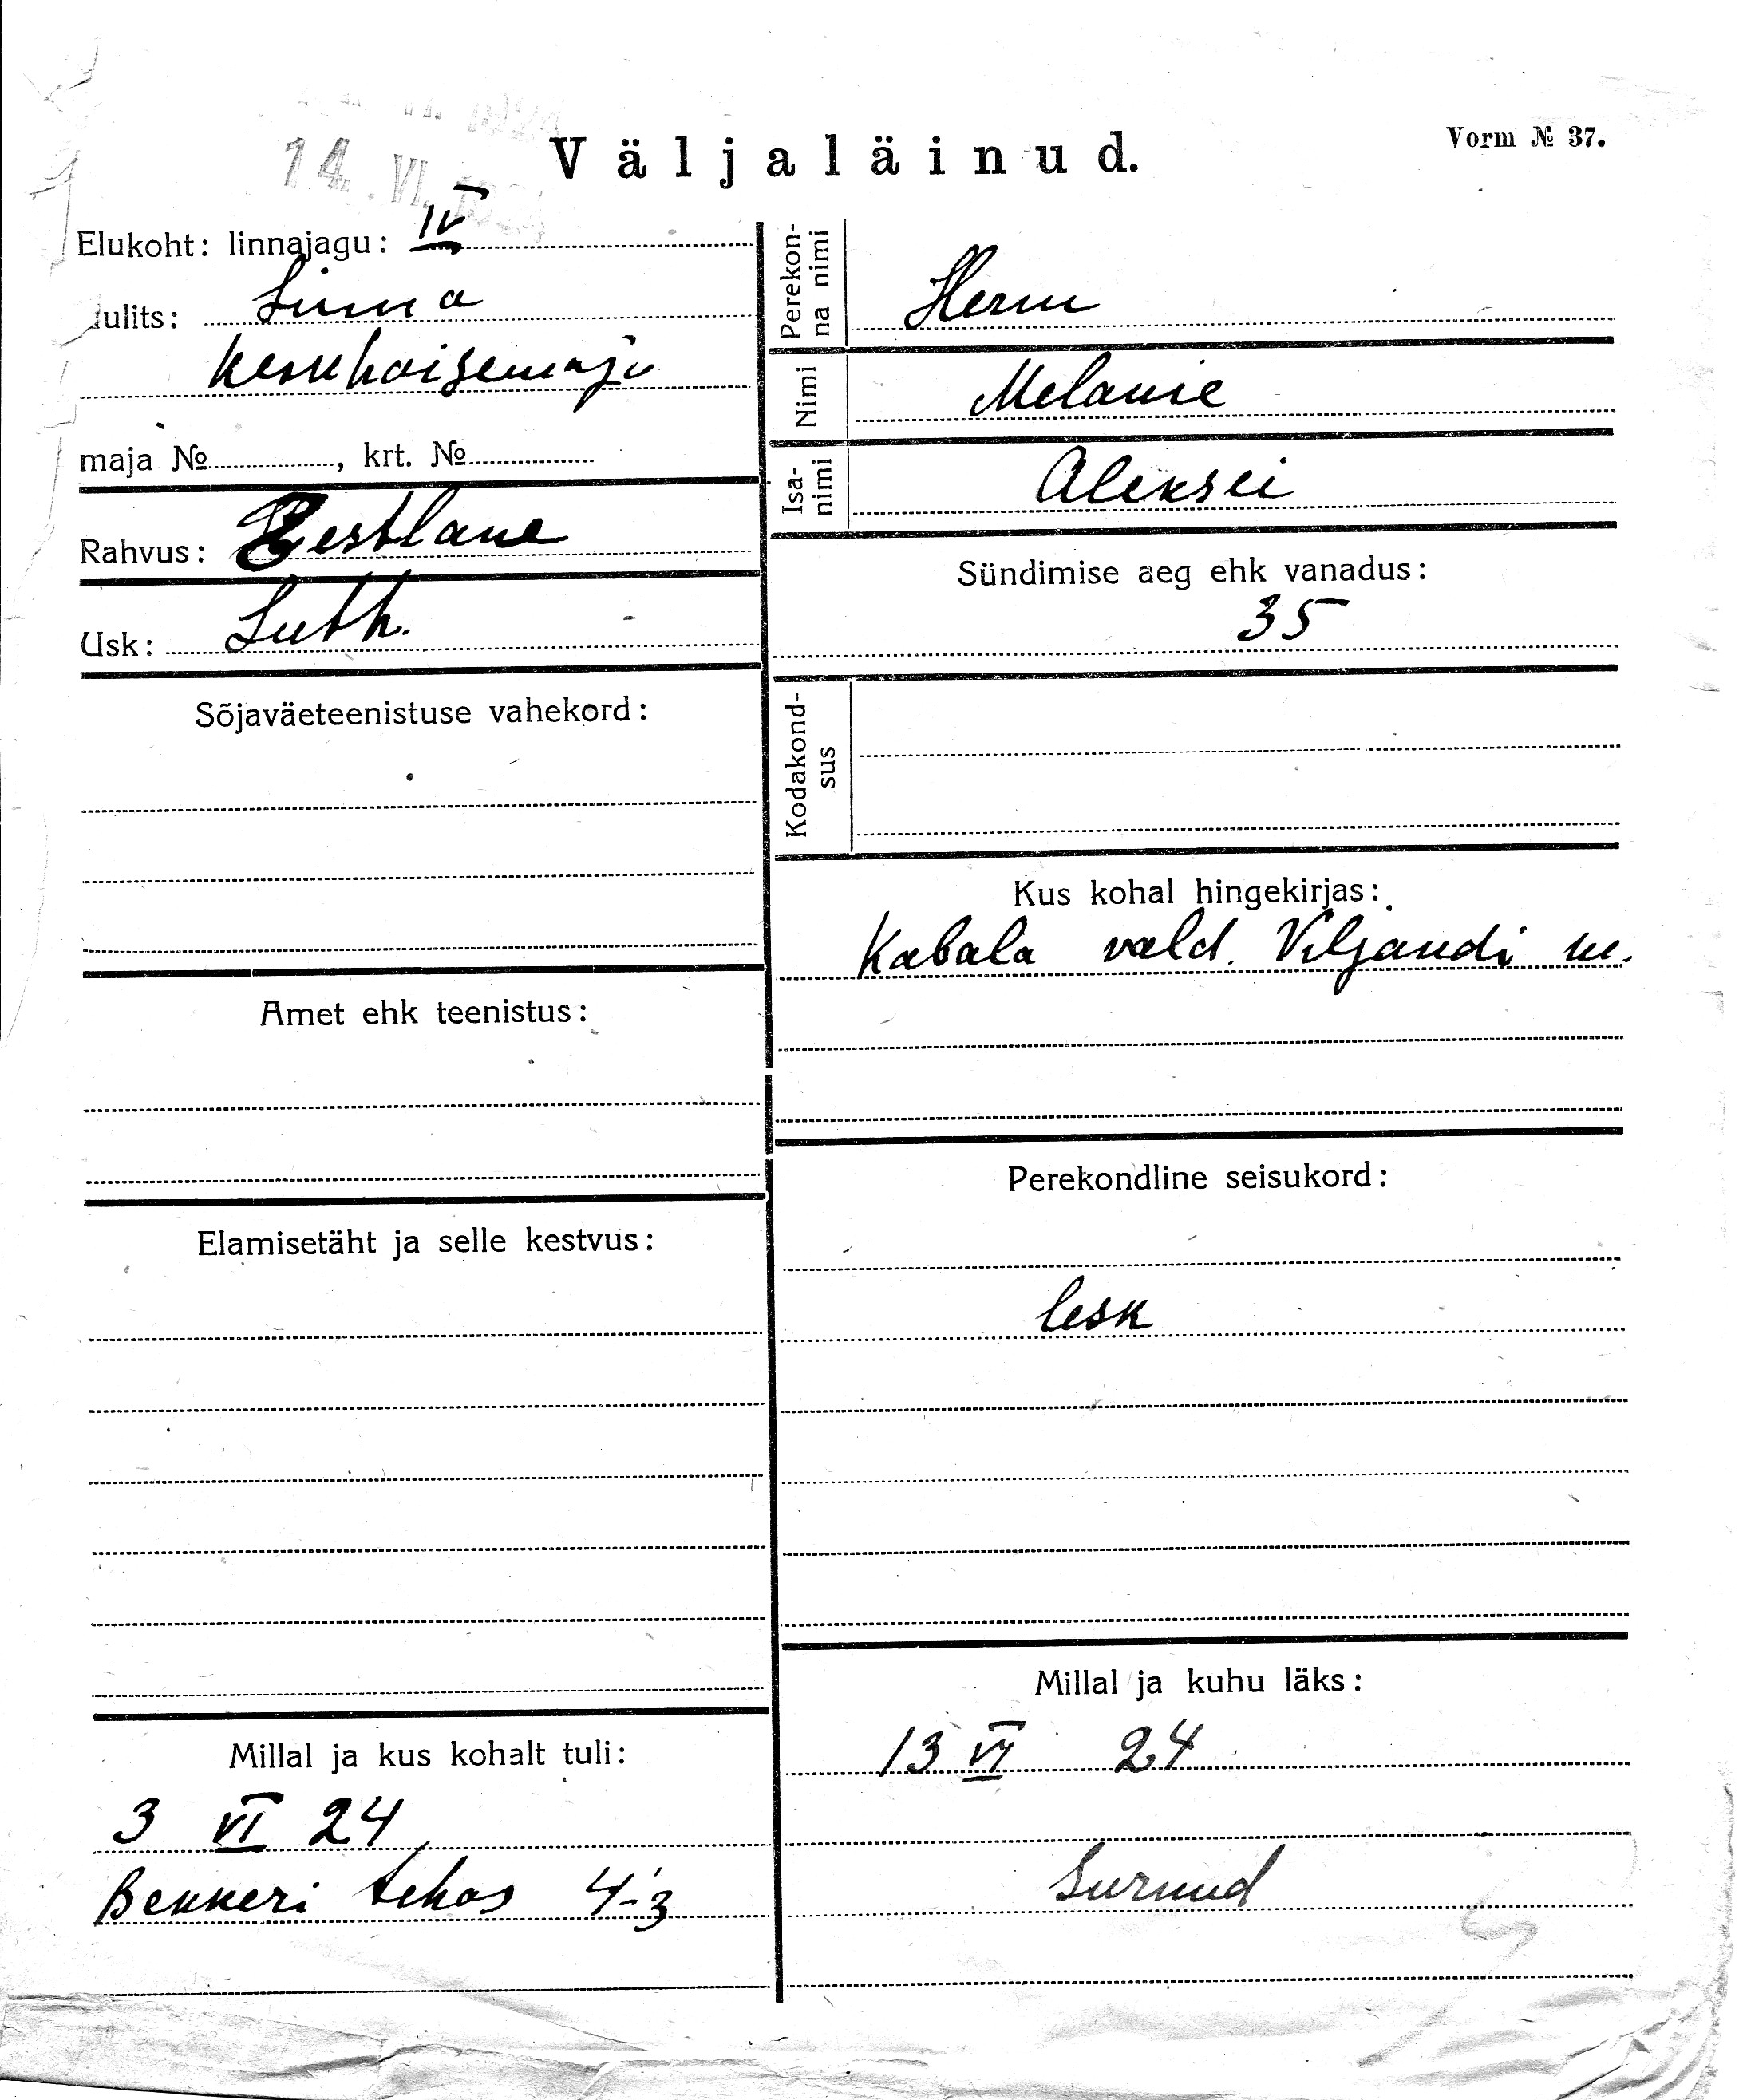 Väljaläinud.
Vorm № 37.
14. VI.
Elukoht: linnajagu: IV
uulits: Linna
keskhaigemaja
maja № , krt. №
Rahvus: Eestlane
Usk: Luth.
Sõjaväeteenistuse vahekord:
Amet ehk teenistus:
Elamisetäht ja selle kestvus:
Millal ja kus kohalt tuli:
3 VI 24
Bekkeri tehas 4-3
Perekon-
na nimi
Herm
Nimi
Melanie
Isa-
nimi
Aleksei
Sündimise aeg ehk vanadus:
35
Kodakond-
sus
Kus kohal hingekirjas:
Kabala vald. Viljandi m.
Perekondline seisukord:
lesk
Millal ja kuhu läks:
13 VI 24
Surnud